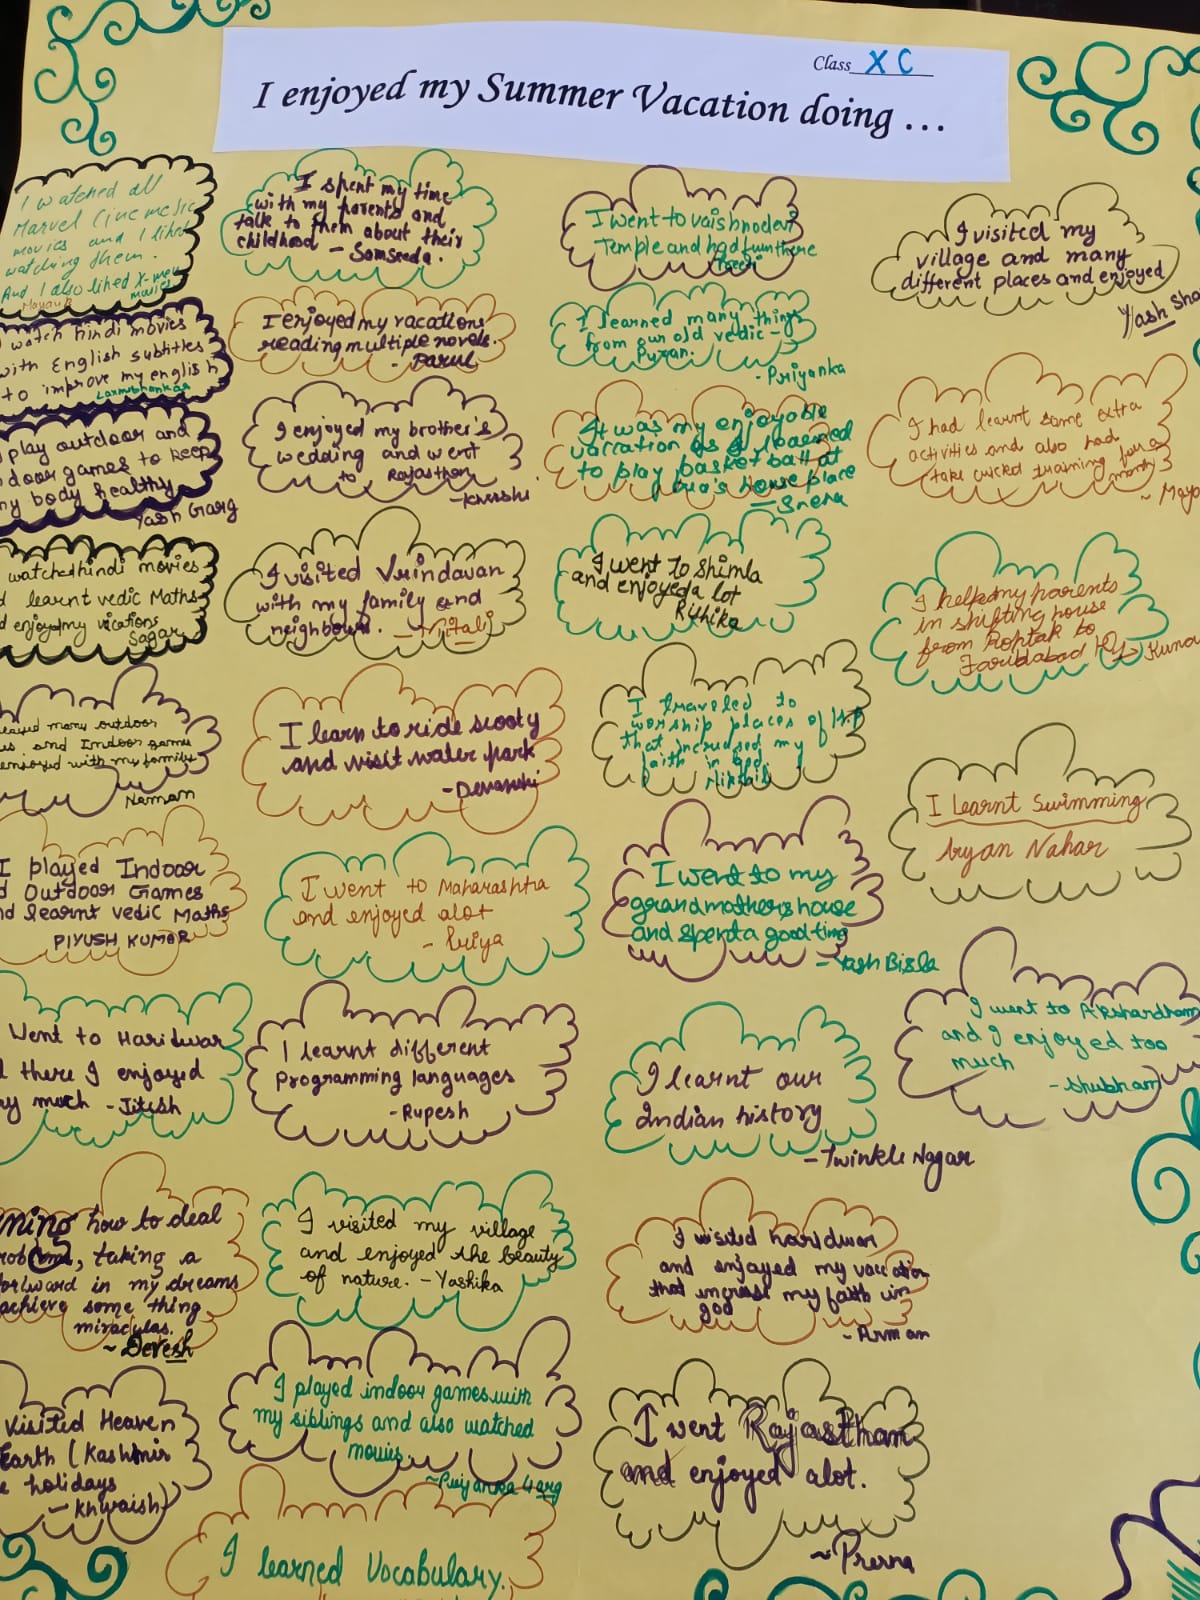 Class X C
I enjoyed my Summer Vacation doing ...
I watched all
Marvel Cinematic
movies and I liked
watching them.
And I also liked X-men
movies
Mayank
watch hindi movies
with English subtitles
to improve my english
play outdoor and
door games to keep
my body healthy
Yash Garg
watched hindi movies
learnt vedic Maths
enjoyed my vications
Sagar
many outdoor
and Indoor games
enjoyed with my family
Naman
I played Indoor
d Outdoor Games
nd learnt vedic Maths
PIYUSH KUMAR
Went to Haridwar
d there I enjoyed
ry much - Jitesh
ning how to deal
taking a
forward in my dreams
achieve some thing
miraculas.
~ Devesh
visited Heaven
Earth (Kashmir
e holidays
- Khwaish
I spent my time
with my parents and
talk to them about their
childhood - Samseeda.
I enjoyed my vacations
reading multiple novels.
- Parul
I enjoyed my brother's
wedding and went
to Rajasthan
- Khushi
I visited Vrindavan
with my family and
neighbours. - Mitali
I learn to ride scooty
and visit water park
- Devanshi
I went to Maharashtra
and enjoyed alot
- Priya
I learnt different
Programming languages
- Rupesh
I visited my village
and enjoyed the beauty
of nature. - Yashika
I played indoor games with
my siblings and also watched
movies.
~ Priyanka Garg
I learned Vocabulary.
I went to vaishnodevi
Temple and had fun there
I learned many things
from our old vedic -
Puran.
- Priyanka
It was my enjoyable
varration as I learned
to play basket ball at
house place
- Sneha
I went to Shimla
and enjoyed a lot
Rithika
I traveled to
worship places of H.P
that increased my
faith in God.
I went to my
grandmothers house
and spend a good time
- Yash Bisla
I learnt our
Indian history
- Twinkle Nagar
I visited haridwar
and enjoyed my vacation
that increase my faith in
god
- Arman
I went Rajasthan
and enjoyed alot.
~ Prerna
I visited my
village and many
different places and enjoyed
Yash Sha
I had learnt some extra
activities and also had
take cricket training for a
month
~ Maya
I helped my parents
in shifting house
from Rohtak to
Faridabad
Kuna
I Learnt Swimming
Aryan Nahar
I went to Akshardham
and I enjoyed too
much
- Shubham